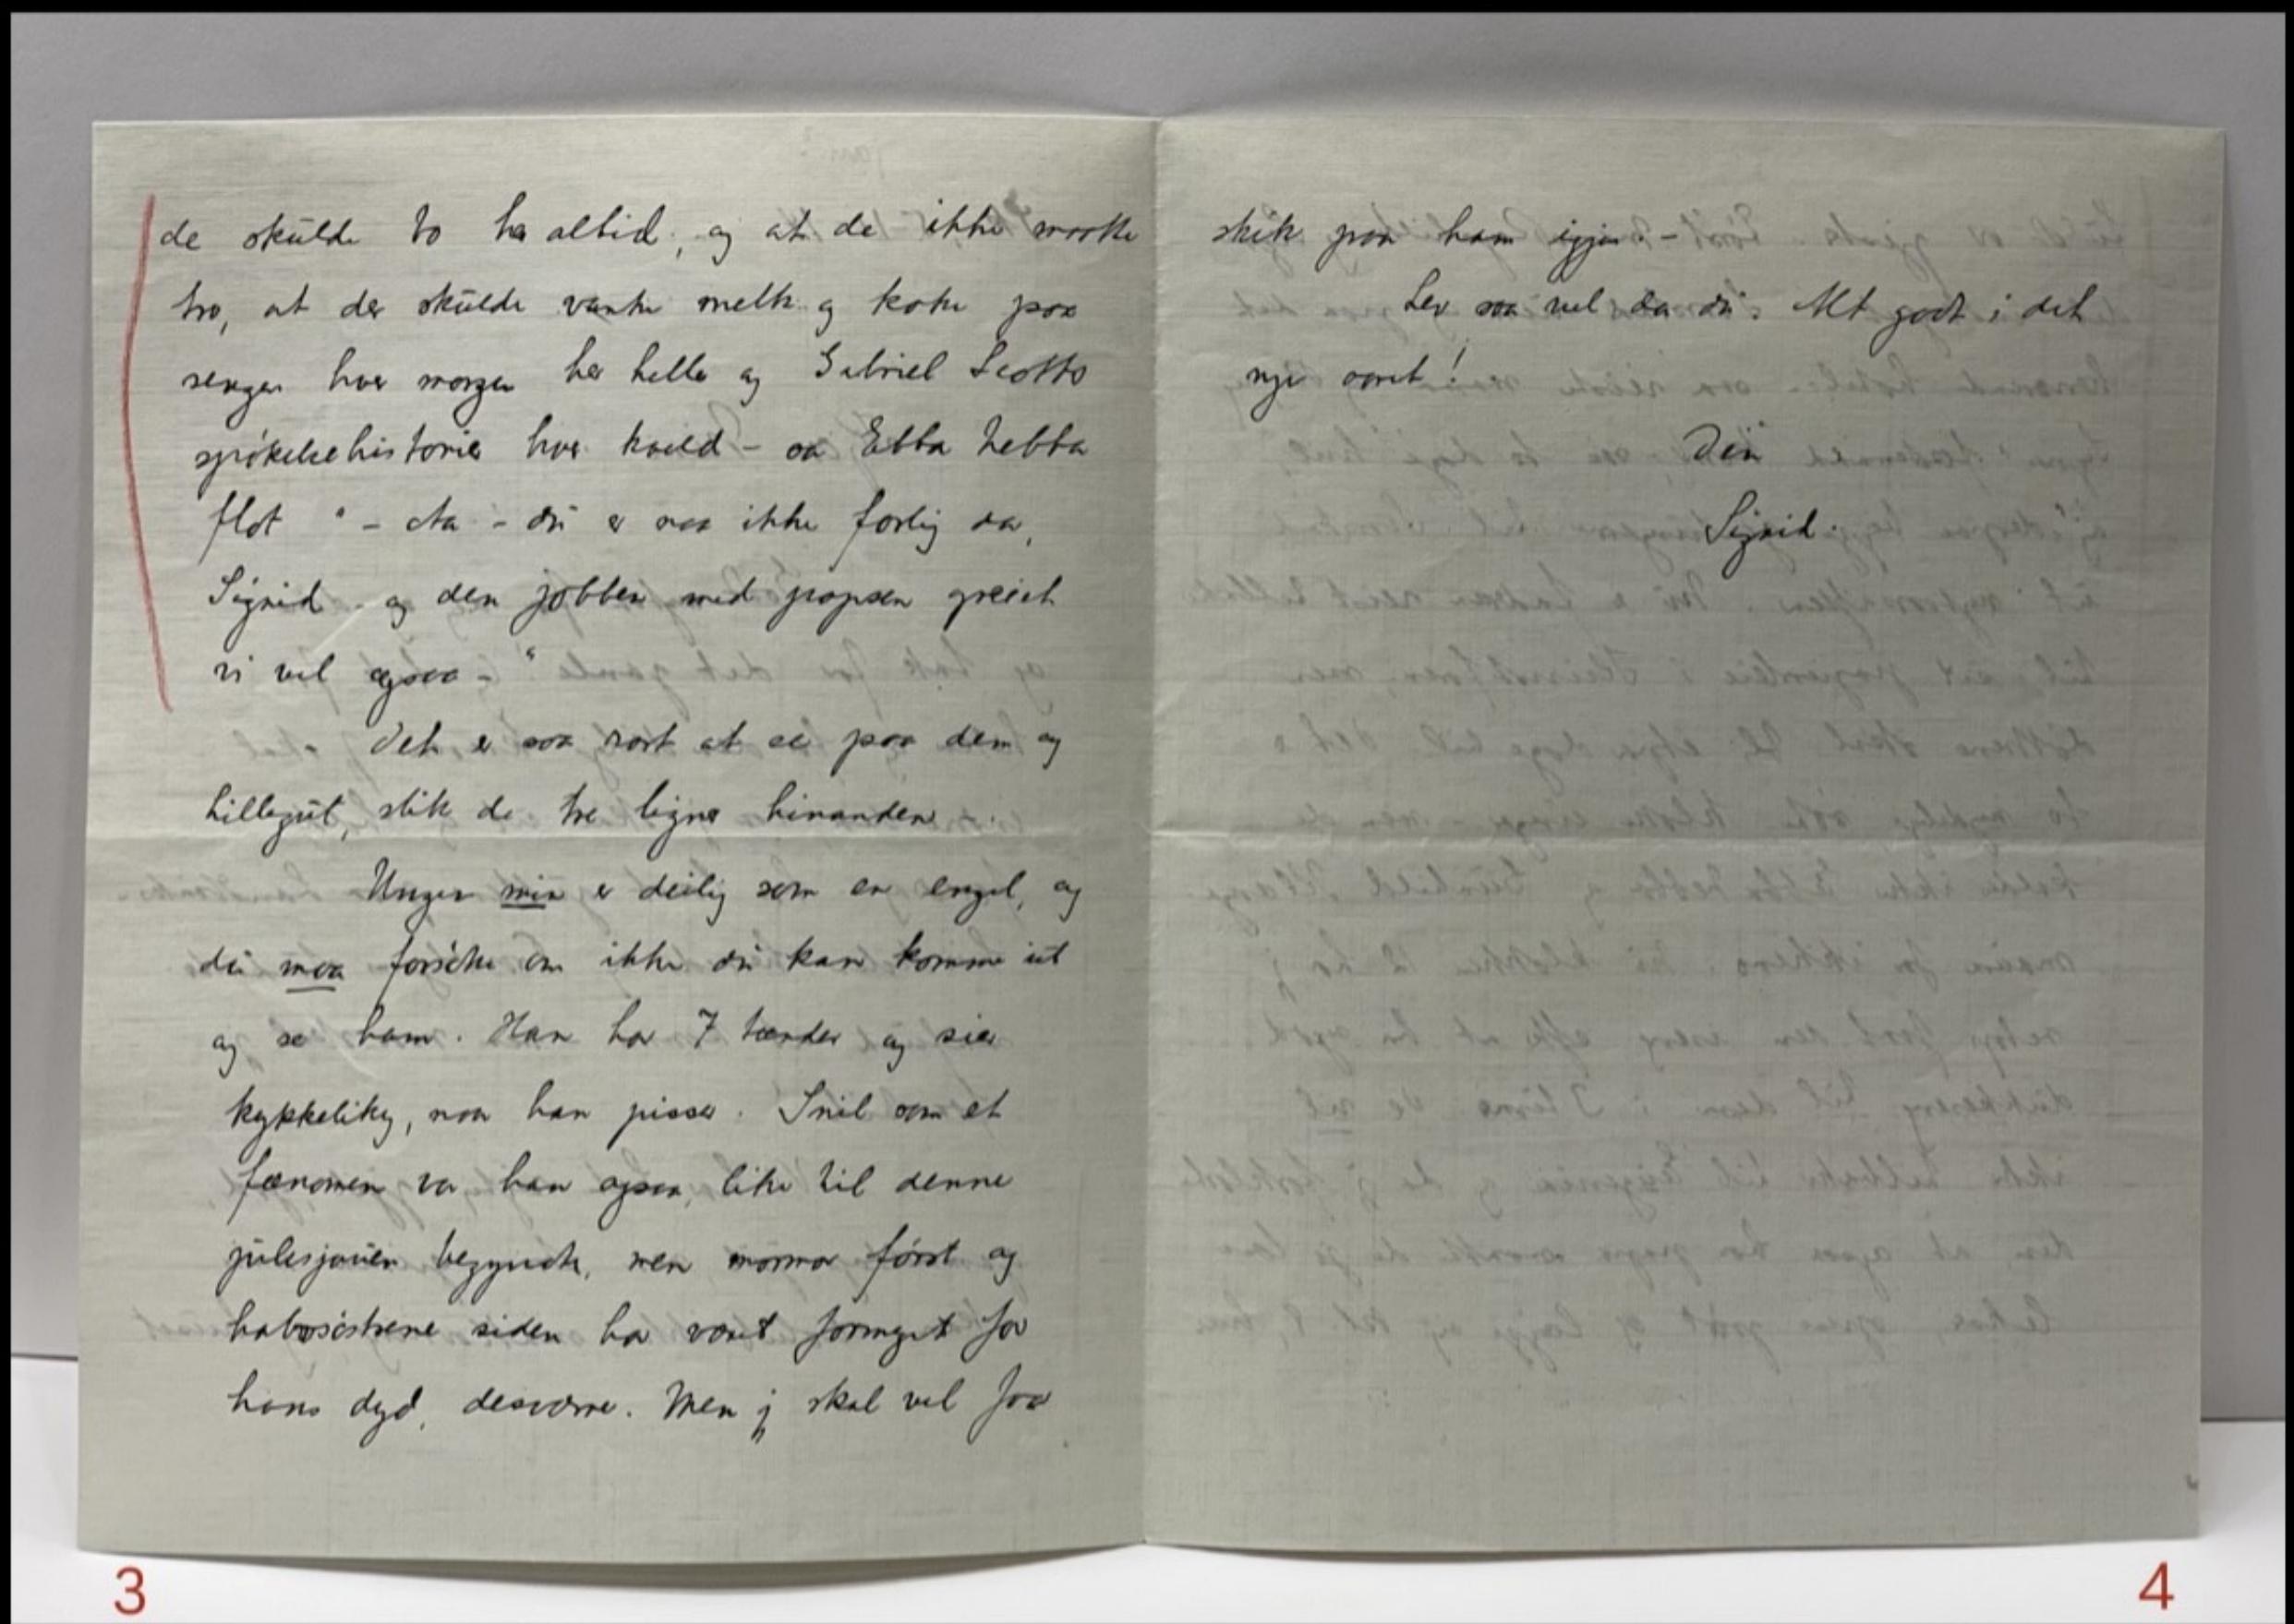 de skulde bo her altid, og at de ikke maatte
tro, at der skulde vanke melk og kake paa
sengen hver morgen her heller og Gabriel Scotts
spökelsehistorier hver kveld – sa Ebba Tebba
flot " – Aa – du er naa ikke farlig da,
Sigrid – og den jobben med papsen greiet
vi vel ogsaa – "
Det er saa rart at se paa dem og
Lillegut, slik de tre ligner hinanden –.
Ungen min er deilig som en engel, og
du maa forsöke om ikke du kan komme ut
og se ham. Han har 7 tænder og sier
kykkeliky, naar han pisser. Snil som et
fænomen var han ogsaa, like til denne
julesjauen begyndte, men mormor först og
halvsöstrene siden har været formeget for
hans dyd, desværre. Men jeg skal vel faa
skik paa ham igjen. –
Lev saa vel da du. Alt godt i det
nye aaret!
Din
Sigrid.
3
4